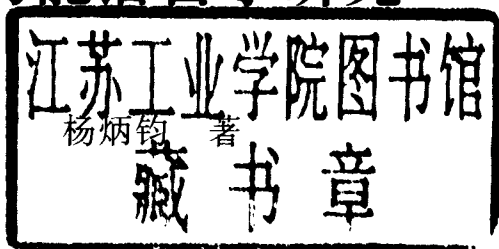 江苏工业学院图书馆
杨炳钧 著
藏书章